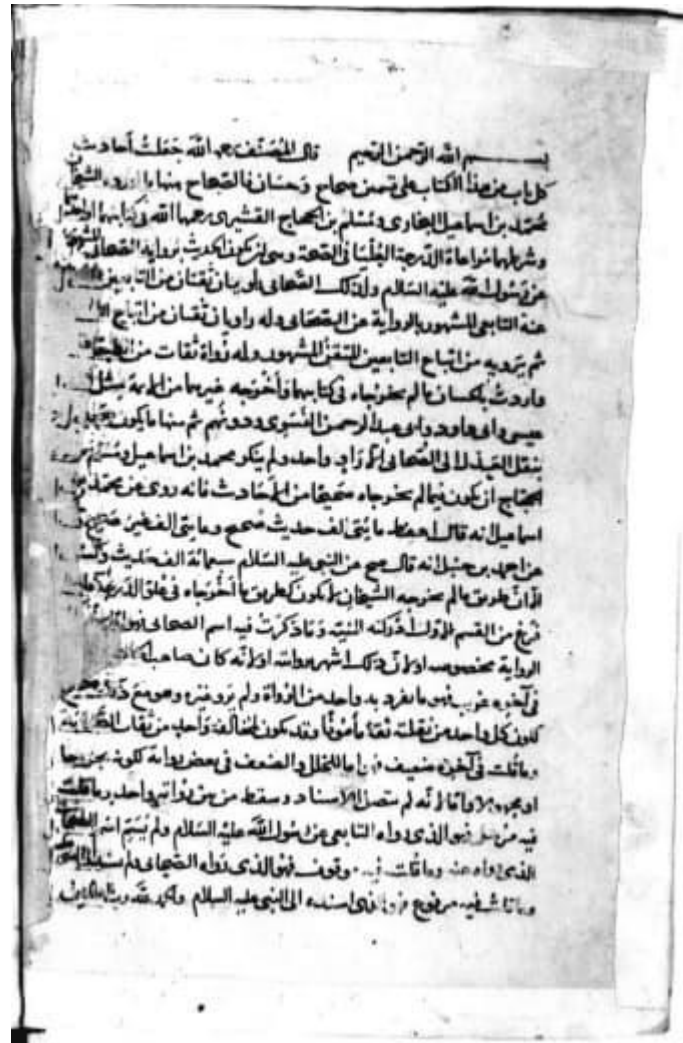 بسم الله الرحمن الرحيم قال المصنف رحمه الله جعلت أحاديث
كل باب من هذا الكتاب على قسمين صحاح وحسان فالصحاح منها ما أورده الشيخان
محمد بن اسماعيل البخاري ومسلم بن الحجاج القشيري رحمهما الله في كتابيهما
وشرطهما مراعاة الدرجة العليا في الصحة وهي ان يكون الحديث برواية الصحابي
عن رسول الله عليه السلام ولذلك الصحابي راويان ثقتان من التابعين
عنه التابعي المشهور بالرواية عن الصحابي وله راويان ثقتان من اتباع
ثم يرويه من اتباع التابعين المتقن المشهور وله رواة ثقات من الطبقة
واردت بالحسان مالم يخرجاه في كتابيهما وأخرجه غيرهما من الايمة مثل
عيسى وابي داود وابي عبد الرحمن النسوي ودونهم ثم منها ما يكون
بنقل العدل الى الصحابي راو واحد ولم ينكر محمد بن اسماعيل ومسلم بن
الحجاج ان يكون فيمالم يخرجاه صحيحا من الأحاديث فانه روى عن محمد بن
اسماعيل انه قال احفظ مايتى الف حديث صحيح ومايتى الف غير صحيح
عن احمد بن حنبل انه قال صح من النبي عليه السلام سبعمائة الف حديث
الا ان طريق مالم يخرجه الشيخان لا يكون كطريق ما أخرجاه في علو الدرجة
فرغ من القسم الاول وما ذكرت فيه اسم الصحابي
الرواية بخصوصه او لان ذلك اشهر او لانه كان صاحب
في آخره غريب فهو ما تفرد به واحد من الرواة ولم يرو غيره وهو مع ذلك
كون كل واحد من نقلته ثقة مأمونا وقد يكون لمخالفة واحد من ثقات
وما قلت في آخره ضعيف اما للخلل والضعف في بعض رواته لكونه مجروحا
او مجهولا واما لانه لم يتصل الاسناد وسقط من بين رواته واحد وما قلت
فيه مرسل فهو الذي رواه التابعي عن رسول الله عليه السلام ولم يسم اسم الصحابي
الذي رواه عنه وما قلت موقوف فهو الذي رواه الصحابي ولم يسنده
وما قلت فيه مرفوع فهو الذي اسنده الى النبي عليه السلام